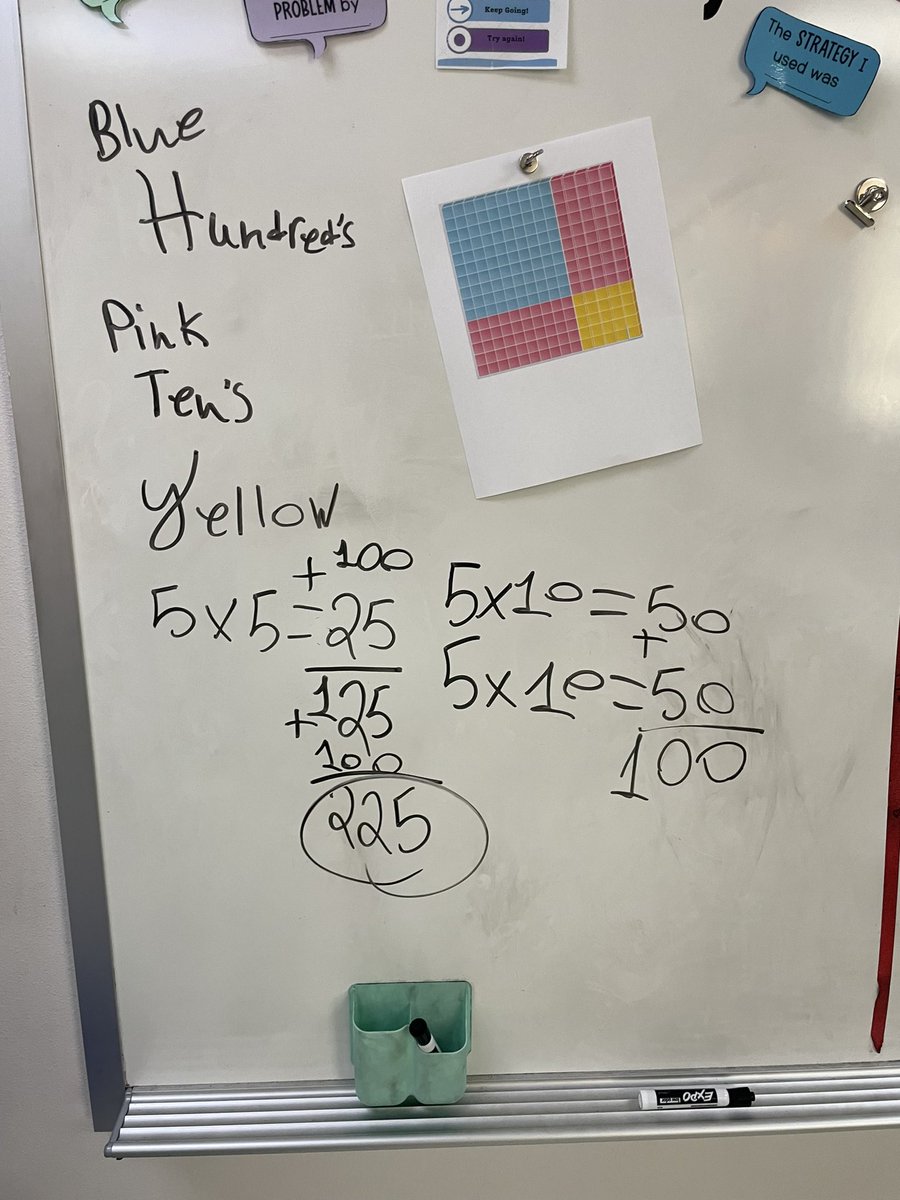 PROBLEM by
Keep Going!
Try again!
The STRATEGY I
used was
Blue
Hundred's
Pink
Ten's
Yellow
+100
5x5=25
125
+100
225
5x10=50
+
5x10=50
100
EXPO